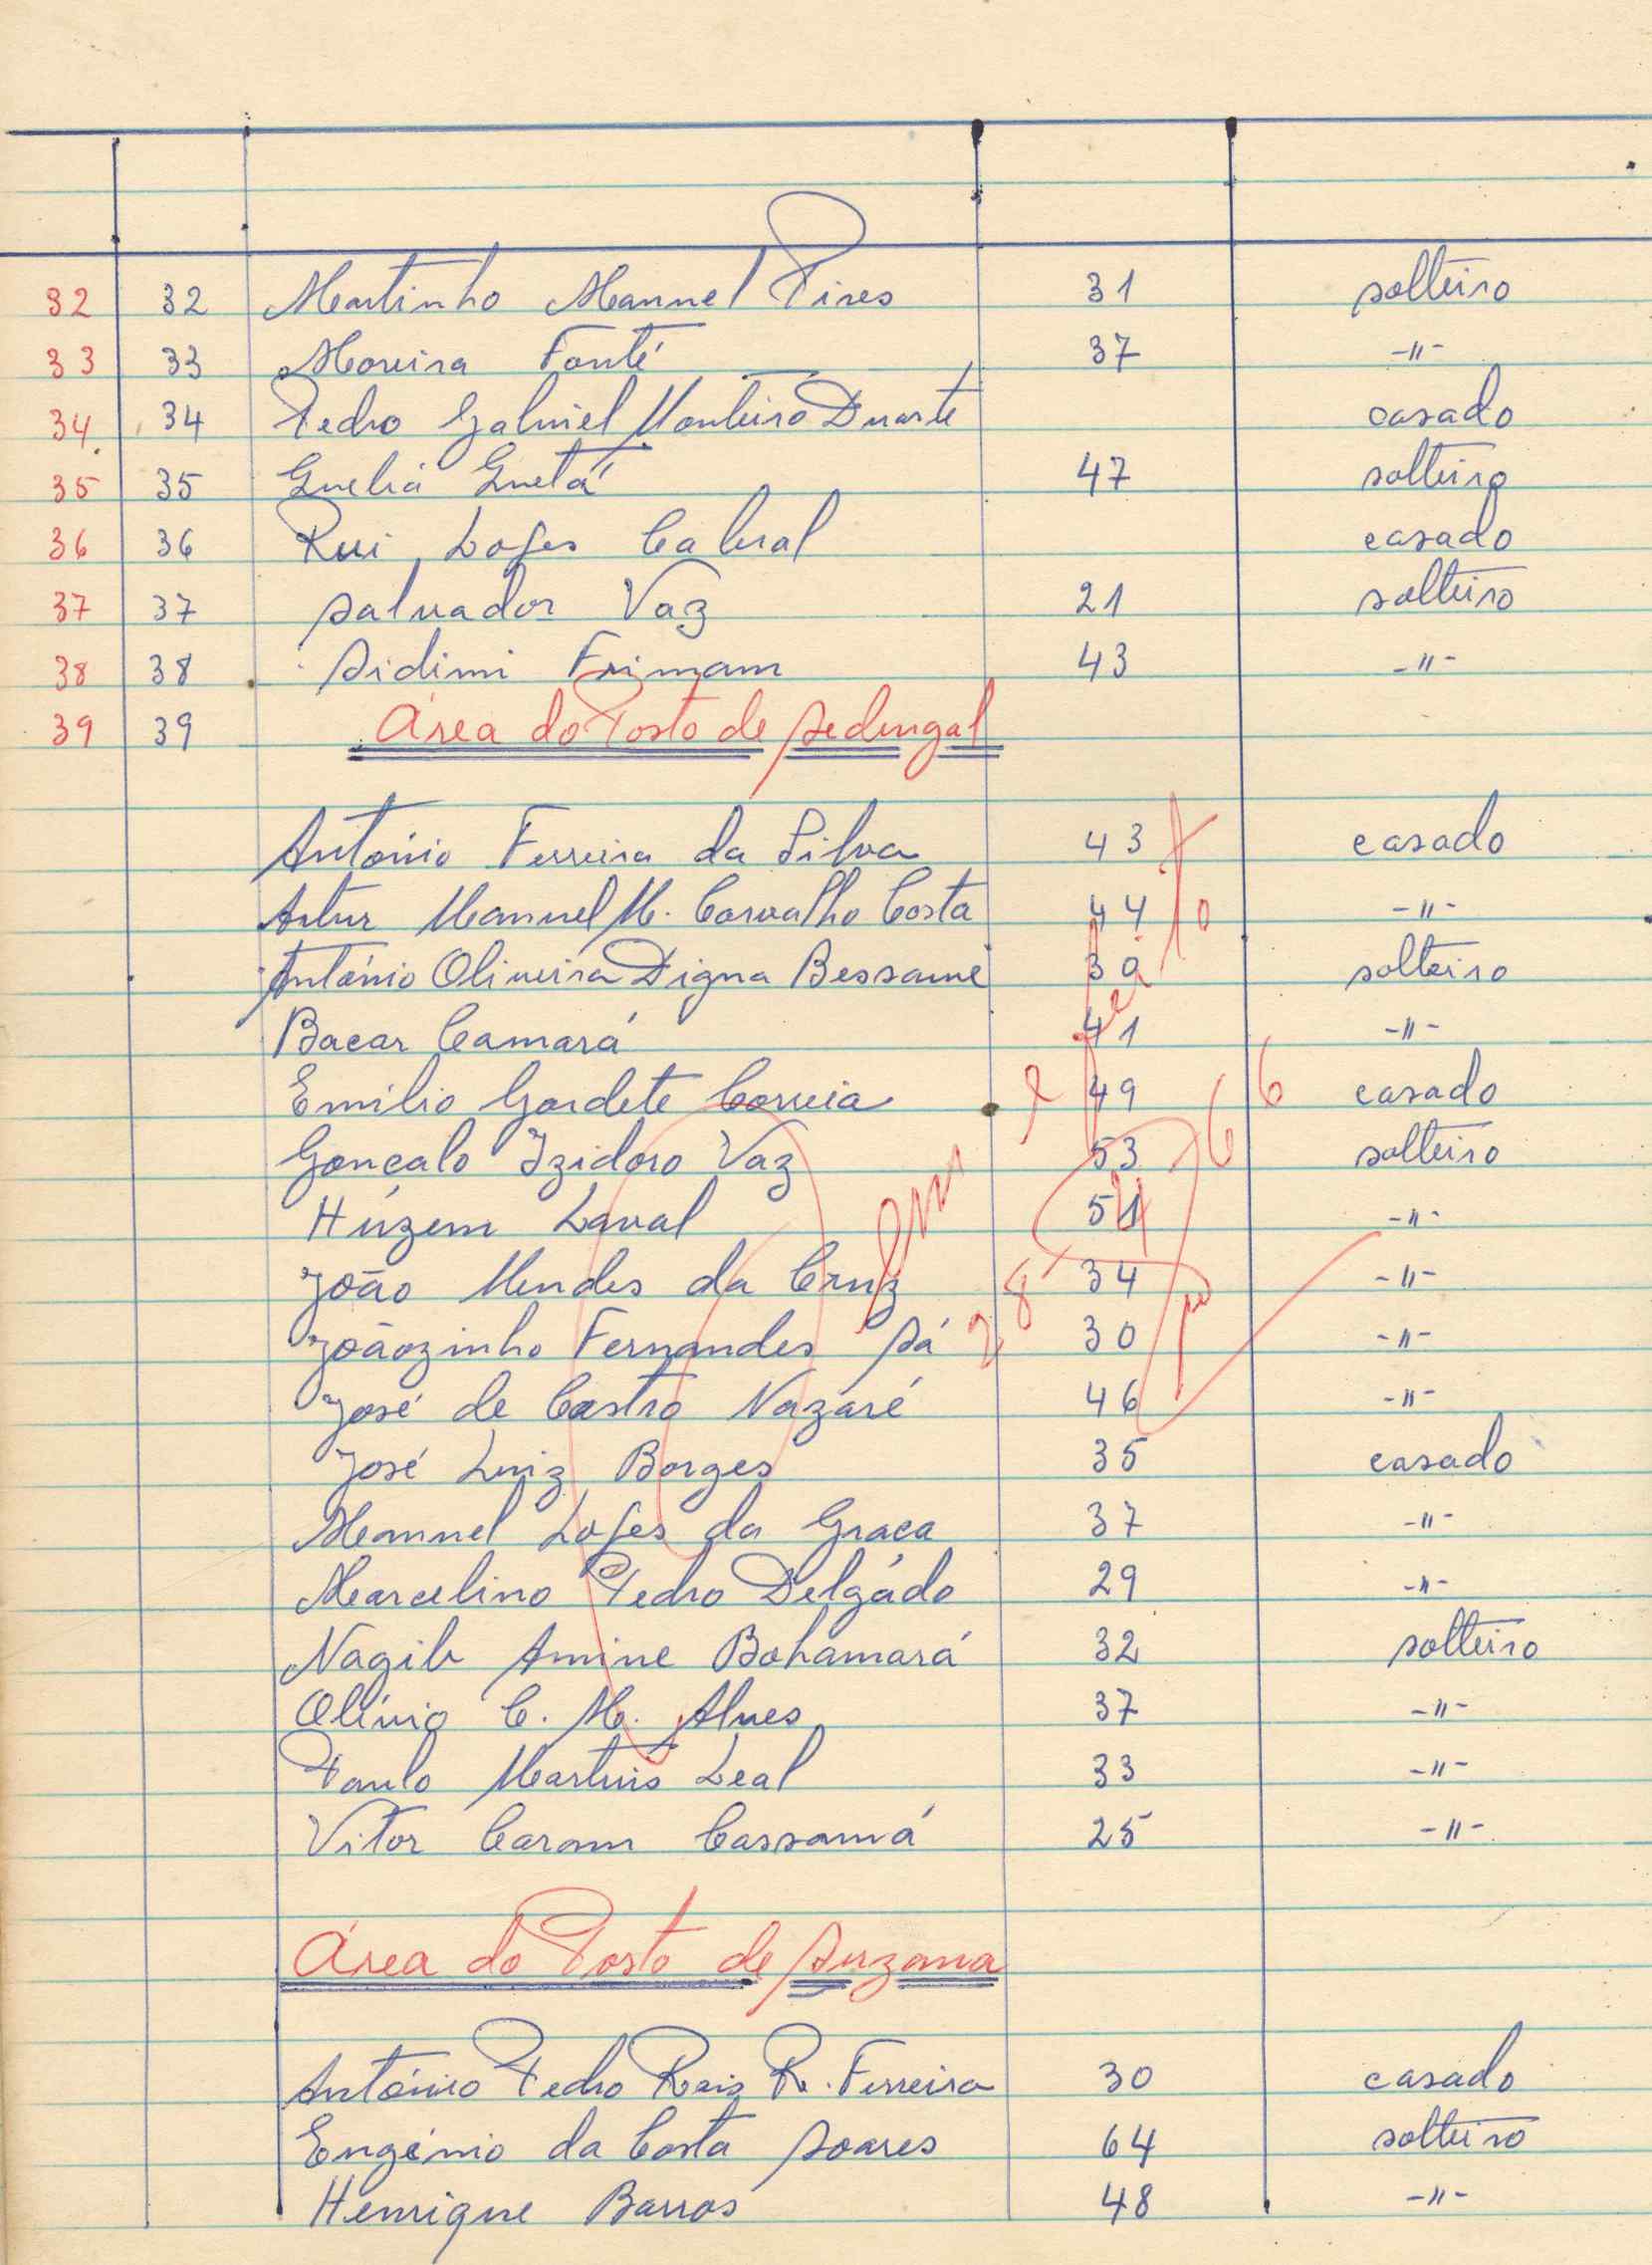 32 32 Martinho Manuel Pires 31 solteiro
33 33 Moreira Fonté 37 -"-
34 34 Pedro Gabriel Monteiro Duarte casado
35 35 Gueliá Guetá 47 solteiro
36 36 Rui Lopes Cabral casado
37 37 Salvador Vaz 21 solteiro
38 38 Sidimi Frimam 43 -"-
39 39 Área do Posto de Sedengal
António Ferreira da Silva 43 casado
Artur Manuel M. Carvalho Costa 44 -"-
António Oliveira Digna Bessame 30 solteiro
Bacar Camará 41 -"-
Emílio Gardete Correia 49 casado
Gonçalo Izidoro Vaz 53 solteiro
Húzem Laval 51 -"-
João Mendes da Cruz 34 -"-
Joãozinho Fernandes Sá 30 -"-
José de Castro Nazaré 46 -"-
José Luiz Borges 35 casado
Manuel Lopes da Graça 37 -"-
Marcelino Pedro Delgádo 29 -"-
Nagib Amine Bohamará 32 solteiro
Olívio C. M. Alves 37 -"-
Paulo Martins Leal 33 -"-
Vitor Caram Cassamá 25 -"-
Área do Posto de Suzana
António Pedro Reis R. Ferreira 30 casado
Eugénio da Costa Soares 64 solteiro
Henrique Barros 48 -"-